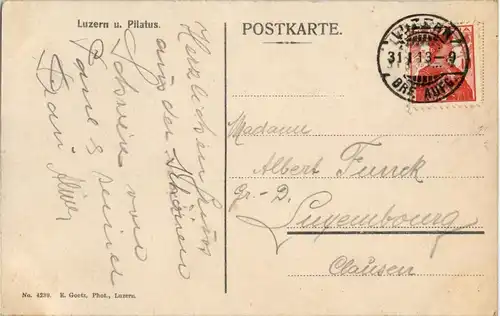 Luzern u. Pilatus.
POSTKARTE.
LUZERN
31.I.13-9
BRF. AUFG.
Herzlichen Gruss
aus der Schönen
Schweiz von
Paul & seiner
Madame
Albert Funck
Gr.-D.
Luxembourg
Clausen
No. 4239. E. Goetz, Phot., Luzern.